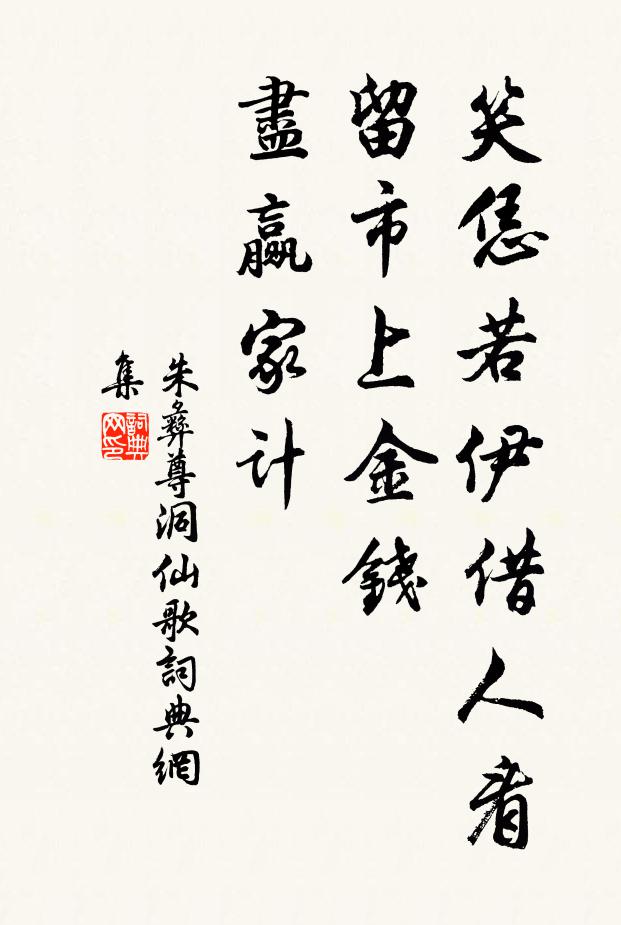 笑恁若伊借人看
留市上金錢
盡贏家計
朱彝尊洞仙歌詞典網
集
詞典网印